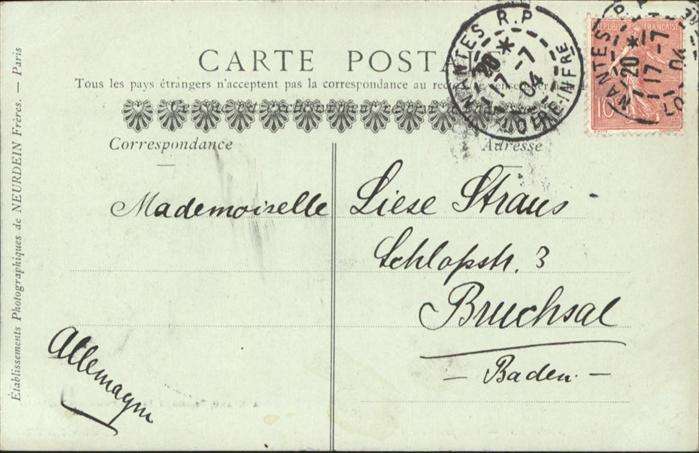 CARTE POSTA
Tous les pays étrangers n'acceptent pas la correspondance au
Correspondance Adresse
Mademoiselle Liese Straus
Schloßstr. 3
Bruchsal
- Baden -
Allemagne
Établissements Photographiques de NEURDEIN Frères. — Paris
NANTES R.P.
20 *
17-7
04
LOIRE-INFRE
NANTES R.P.
20 *
17-7
04
LO
10